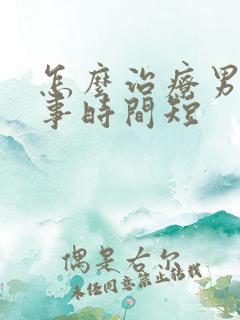 怎麼治療男
事時間短
偶是右尔
未经同意禁止转载